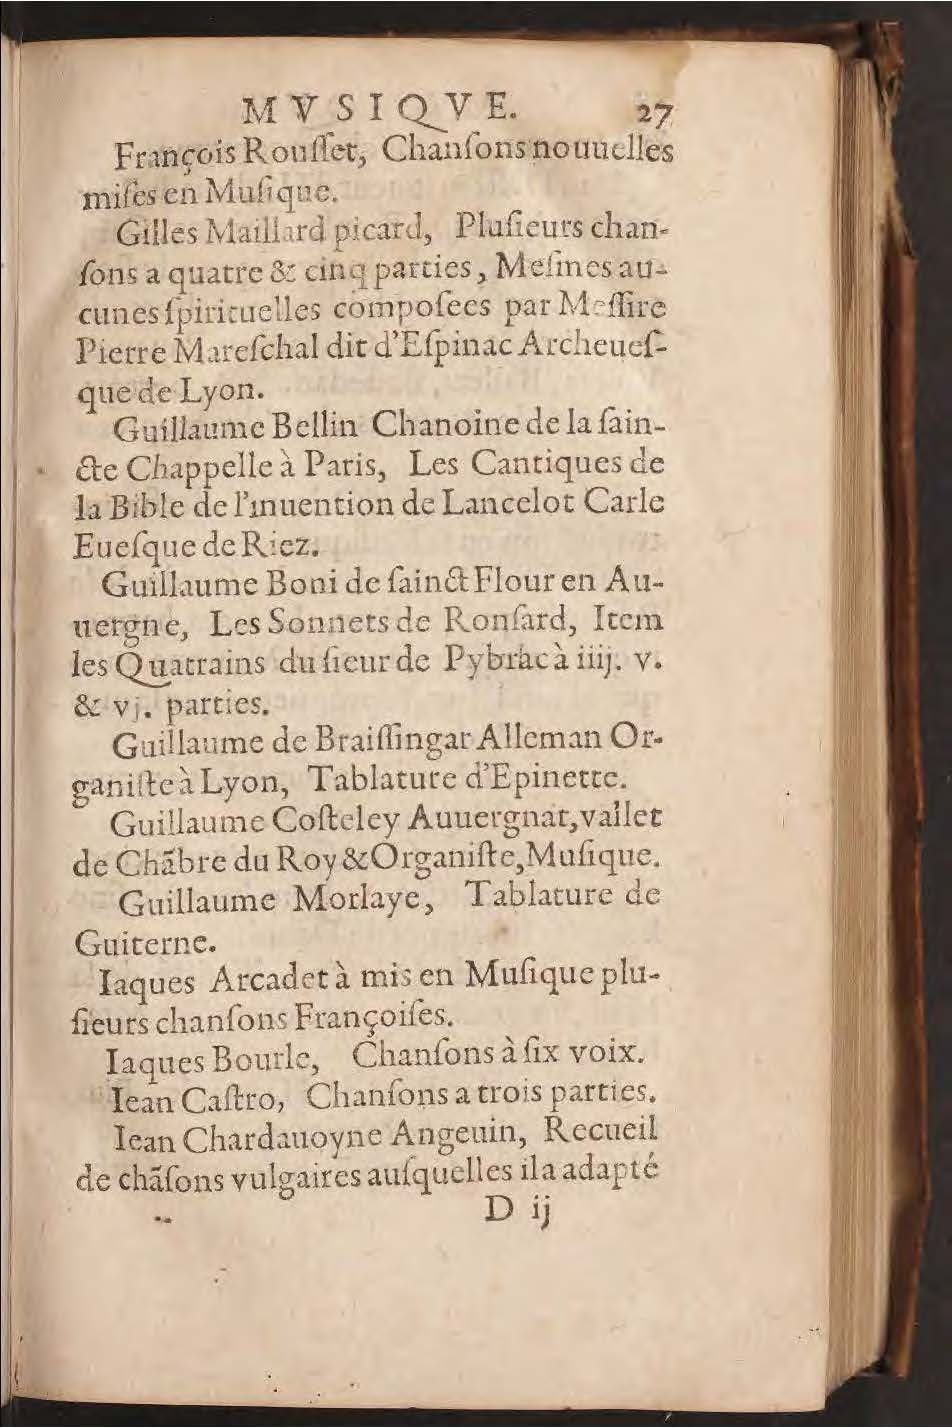 MVSIQVE. 27
François Rouſſet, Chanſons nouuelles
miſes en Muſique.
Gilles Maillard picard, Pluſieurs chan-
ſons a quatre & cinq parties, Meſmes au-
cunes ſpirituelles compoſees par Meſſire
Pierre Mareſchal dit d'Eſpinac Archeueſ-
que de Lyon.
Guillaume Bellin Chanoine de la ſain-
cte Chappelle à Paris, Les Cantiques de
la Bible de l'inuention de Lancelot Carle
Eueſque de Riez.
Guillaume Boni de ſainct Flour en Au-
uergne, Les Sonnets de Ronſard, Item
les Quatrains du ſieur de Pybrac à iiij. v.
& vj. parties.
Guillaume de Braiſſingar Alleman Or-
ganiſte à Lyon, Tablature d'Epinette.
Guillaume Coſteley Auuergnat, vallet
de Chãbre du Roy & Organiſte, Muſique.
Guillaume Morlaye, Tablature de
Guiterne.
Iaques Arcadet à mis en Muſique plu-
ſieurs chanſons Françoiſes.
Iaques Bourle, Chanſons à ſix voix.
Iean Caſtro, Chanſons a trois parties.
Iean Chardauoyne Angeuin, Recueil
de chãſons vulgaires auſquelles il a adapté
D ij